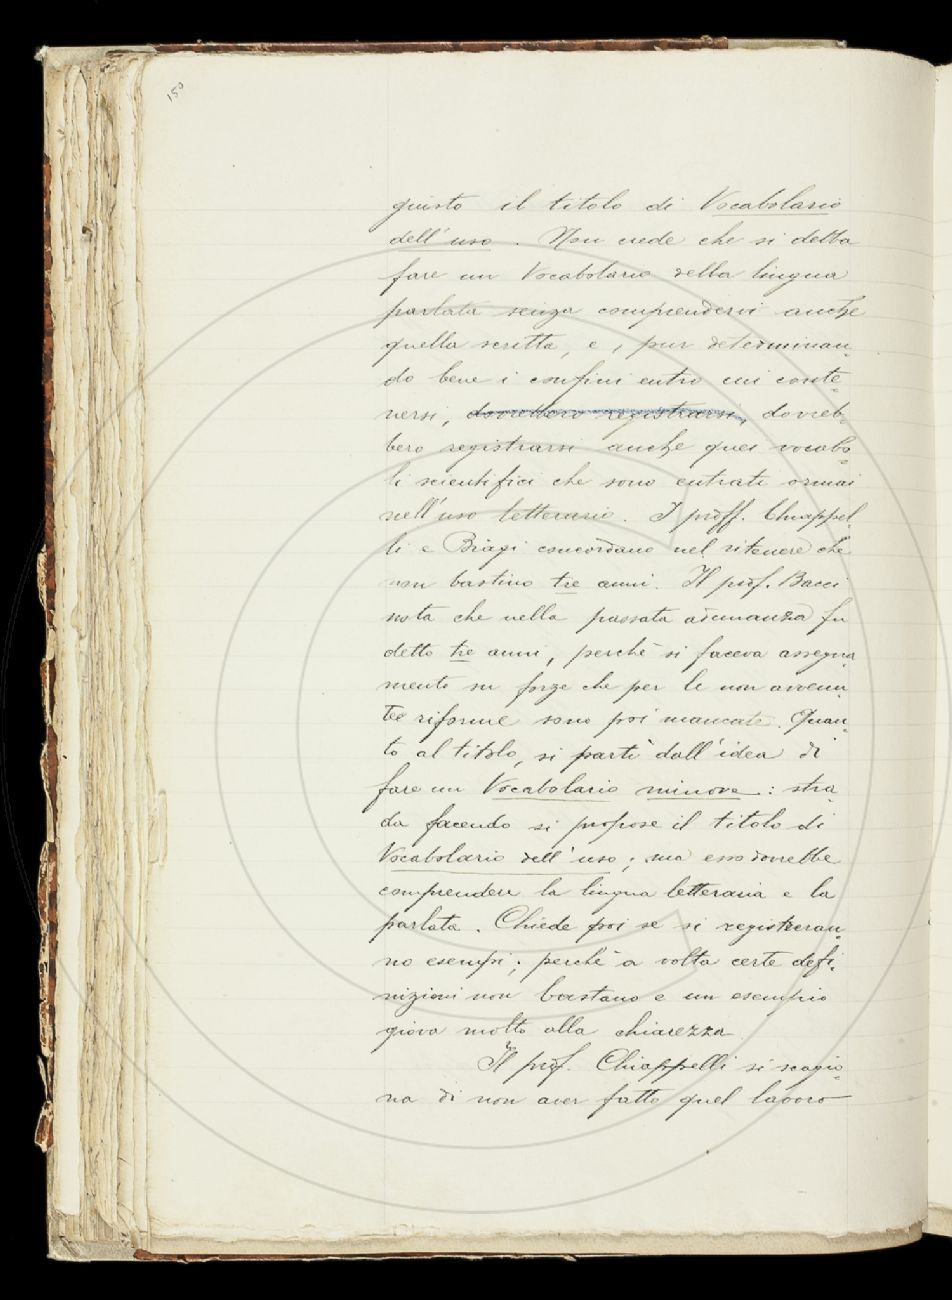 150
giusto il titolo di Vocabolario
dell'uso. Non crede che si debba
fare un Vocabolario della lingua
parlata senza comprendervi anche
quella scritta, e, pur determinan-
do bene i confini entro cui conte-
nersi, dovrebbero registrarsi, dovreb-
bero registrarsi anche quei vocabo-
li scientifici che sono entrati ormai
nell'uso letterario. I proff. Chiappel-
li e Biagi concordano nel ritenere che
non bastino tre anni. Il prof. Bacci
nota che nella passata adunanza fu
detto tre anni, perchè si faceva assegna-
mento su forze che per le non avvenu-
te riforme sono poi mancate. Quan-
to al titolo, si partì dall'idea di
fare un Vocabolario minore: stra-
da facendo si propose il titolo di
Vocabolario dell'uso; ma esso dovrebbe
comprendere la lingua letteraria e la
parlata. Chiede poi se si registreran-
no esempi; perchè a volta certe defi-
nizioni non bastano e un esempio
giova molto alla chiarezza.
Il prof. Chiappelli si scagio-
na di non aver fatto quel lavoro